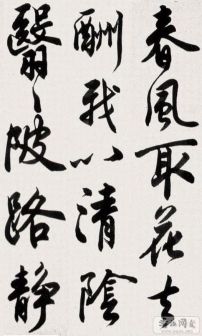 春風取花去
酬我以清陰
翳〻陂路静